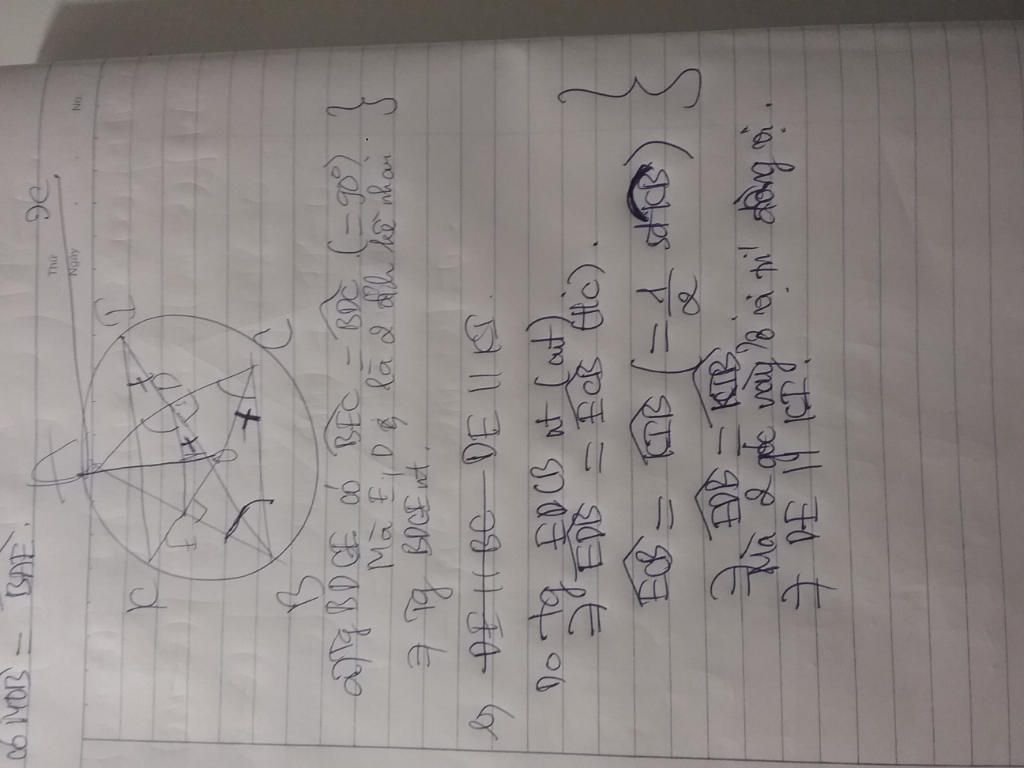 có MDB = BAE.
No.
Thứ
Ngày
x
A
K
I
E
D
B
C
a) Tg BDCE có BEC = BDC (= 90°)
Mà E, D là 2 đỉnh kề nhau
⇒ Tg BDCE nt.
b) DE // BC DE // KI
Do Tg EDCB nt (cmt)
⇒ EDB = ECB (t/c).
ECB = KIB (= 1/2 sđ KB)
⇒ EDB = KIB
Mà 2 góc này ở vị trí đồng vị.
⇒ DE // KI.